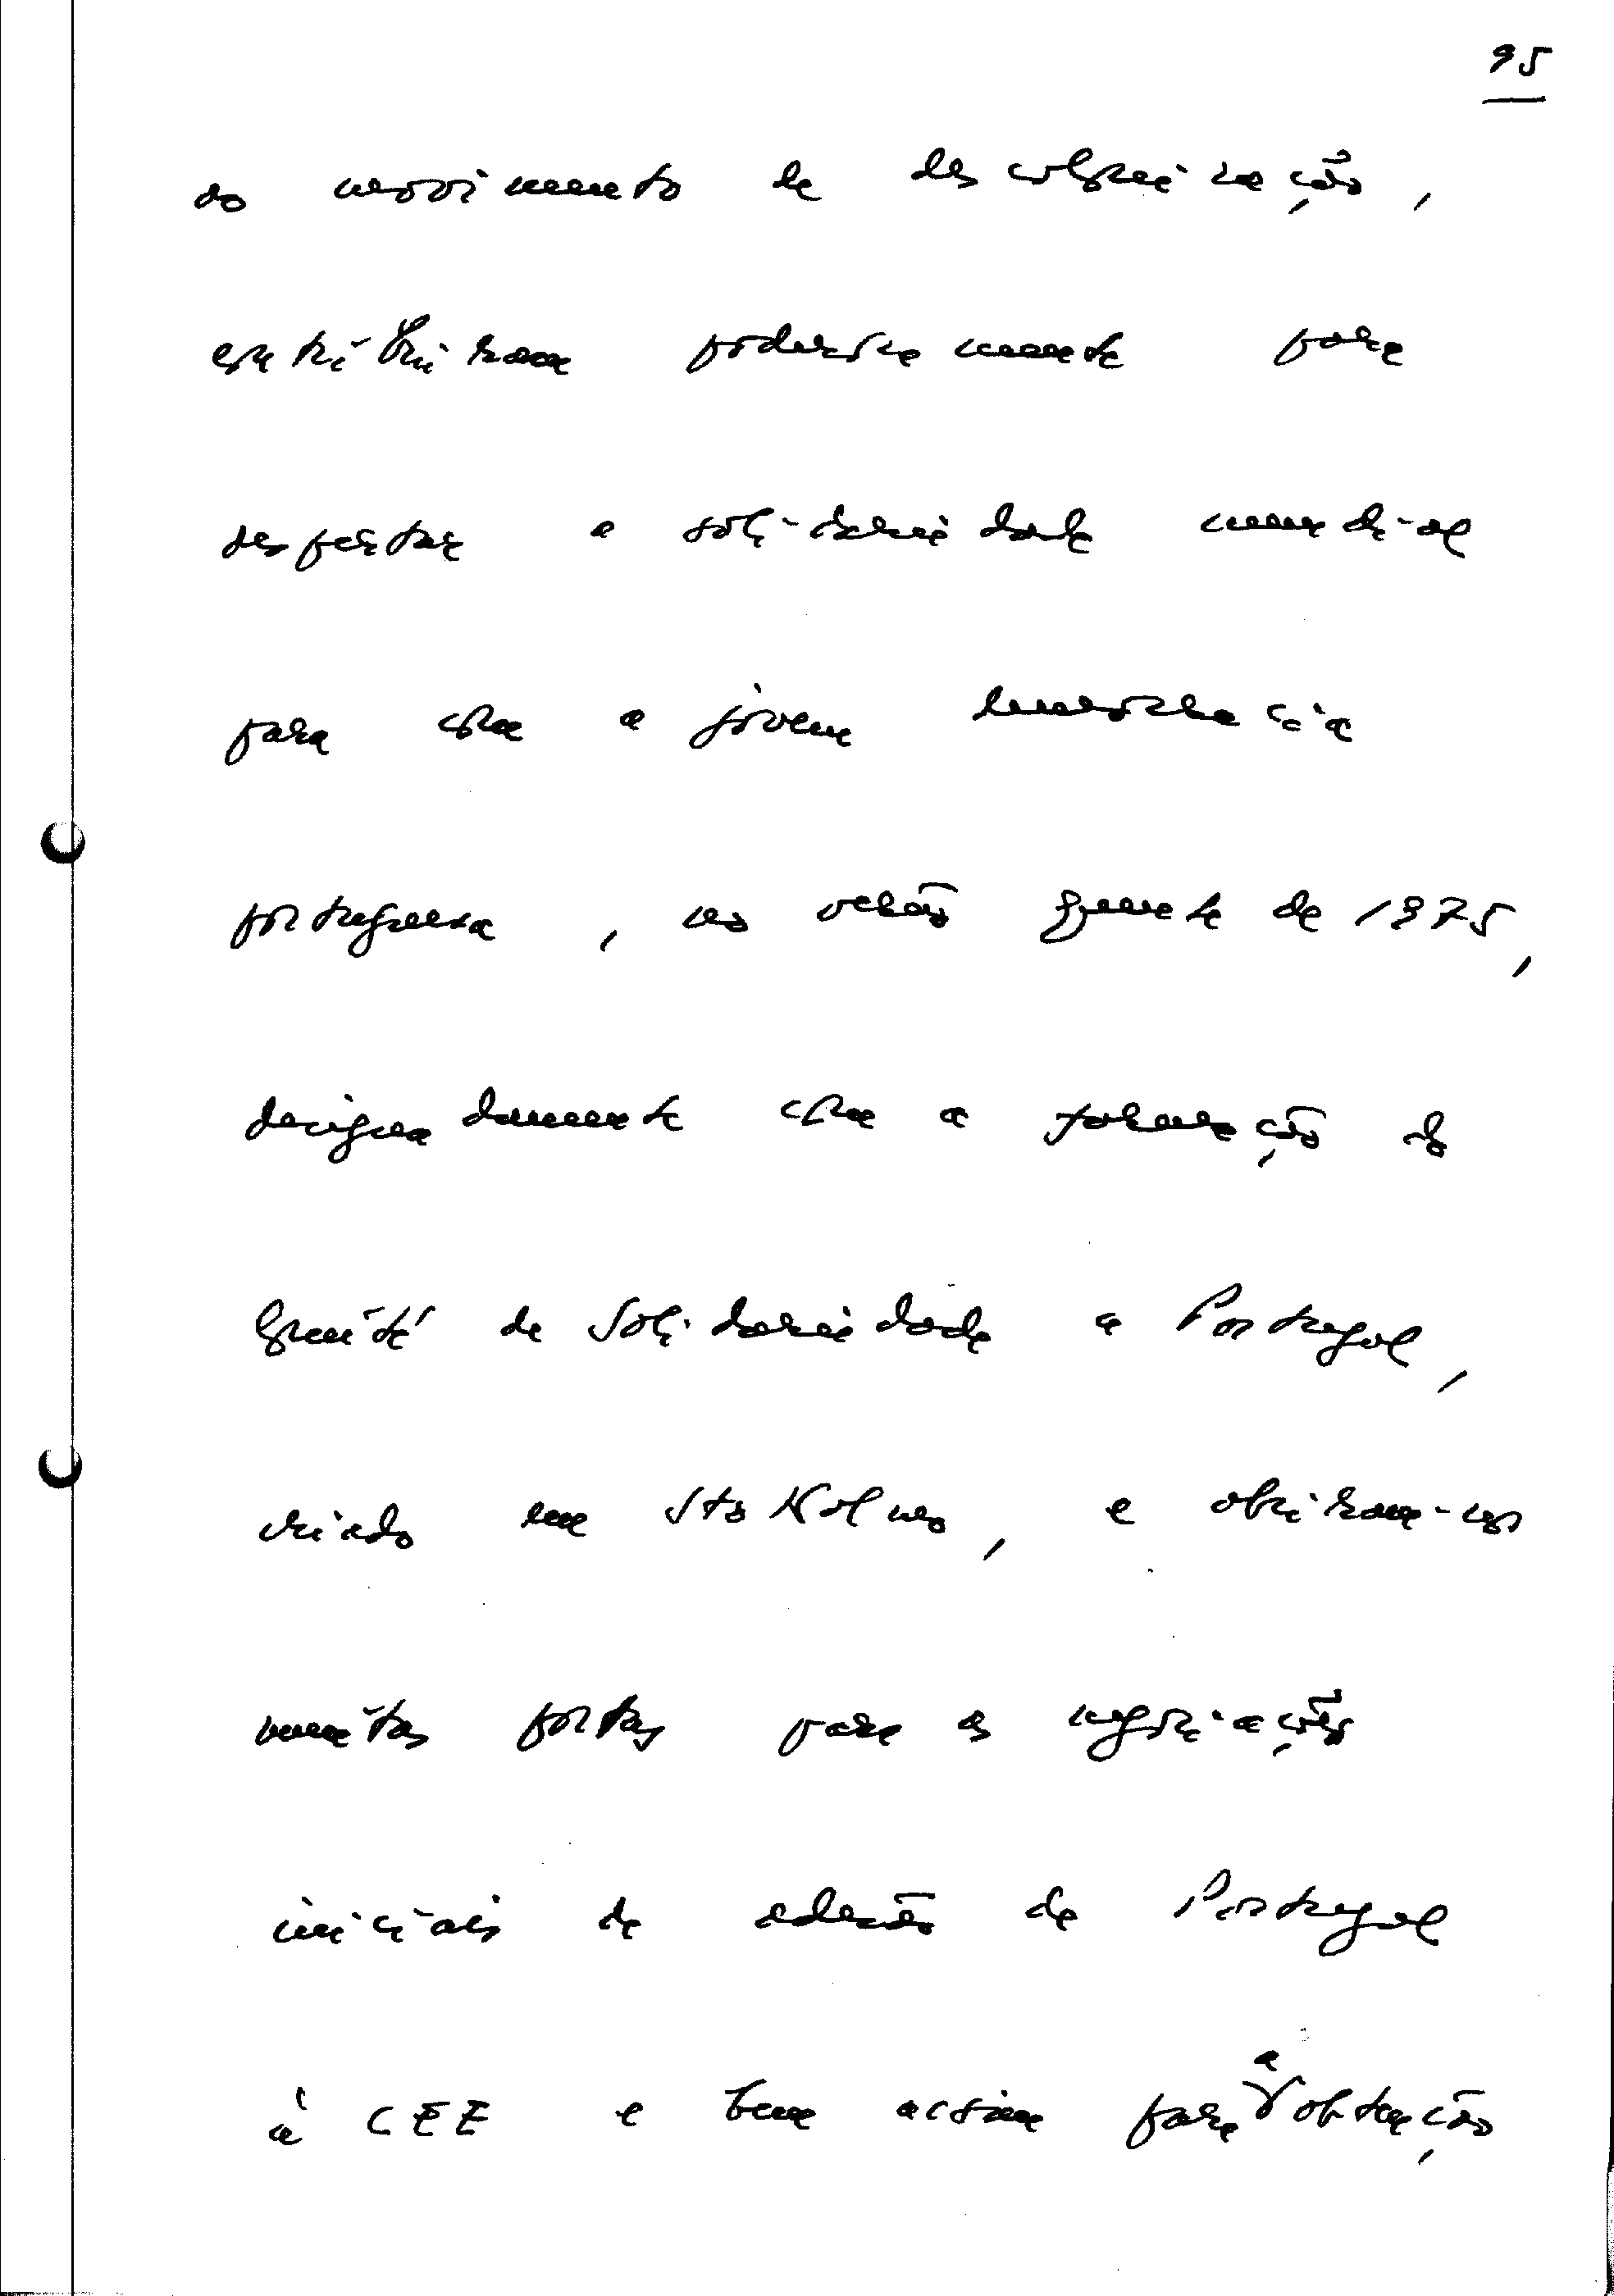 95
do movimento de descolonização,
contribuiram poderosamente para
despertar a solidariedade mundial
para com a jovem democracia
portuguesa, no verão quente de 1975,
designadamente com a formação do
Comité de Solidariedade a Portugal,
criado em Stokolmo, e abriram-nos
muitas portas para as negociações
iniciais de adesão de Portugal
à CEE e bem assim para a obtenção